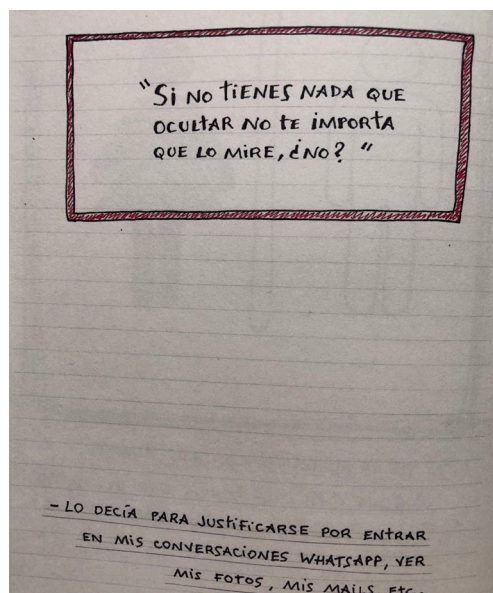 "Si NO tiENES NADA QUE
OCULtAR NO tE iMPORtA
QUE LO MiRE, ¿NO? "
- LO DECÍA PARA JUStiFiCARSE POR ENtRAR
EN MiS CONVERSACIONES WHAtSAPP, VER
MiS FOtOS, MiS MAiLS, EtC.